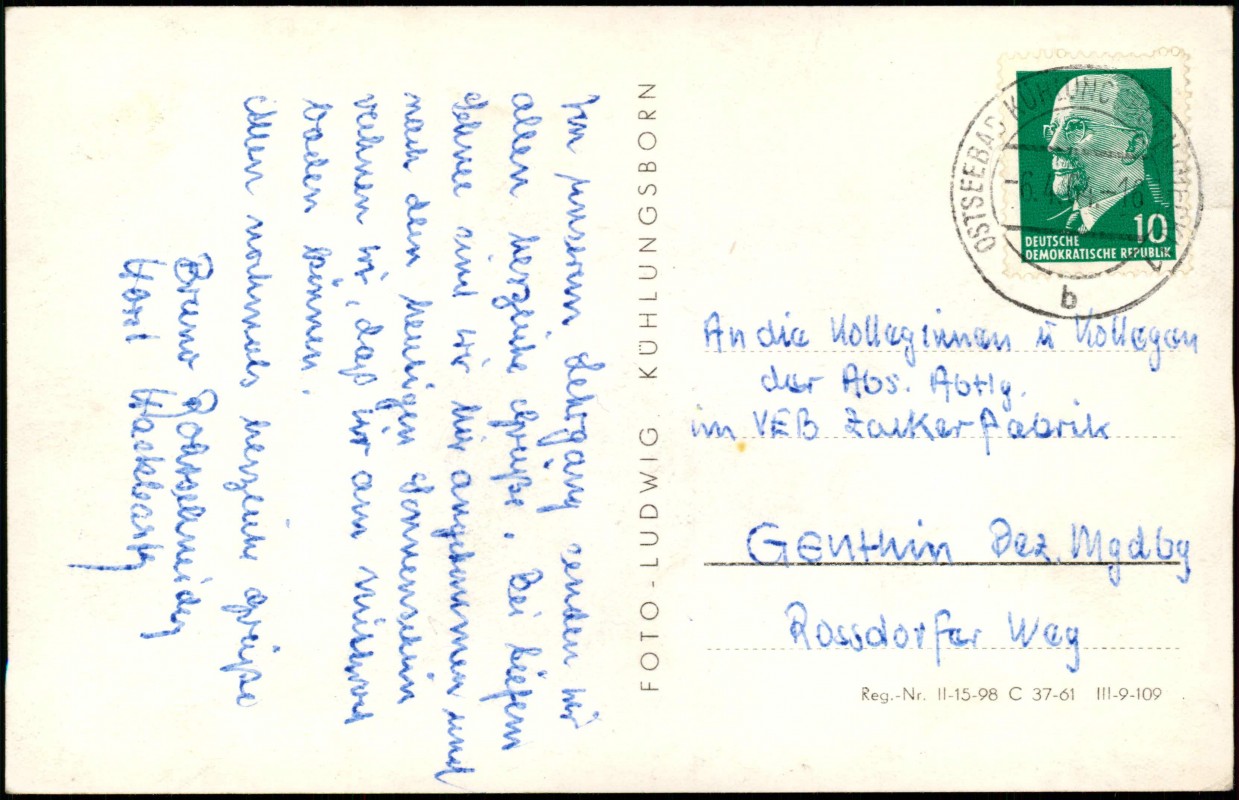 Von unserem Lehrgang senden wir
allen herzliche Grüße. Bei tiefem
Schnee sind wir hier angekommen und
nach dem heutigen Sonnenschein
rechnen wir, daß wir am Mittwoch
baden können.
Allen nochmals herzliche Grüße
Bruno
Horst
FOTO-LUDWIG KÜHLUNGSBORN
OSTSEEBAD KÜHLUNGSBORN
b
10
DEUTSCHE
DEMOKRATISCHE REPUBLIK
An die Kolleginnen u Kollegen
der Abs. Abtlg.
im VEB Zuckerfabrik
Genthin Bez. Mgdbg
Rossdorfer Weg
Reg.-Nr. II-15-98 C 37-61 III-9-109